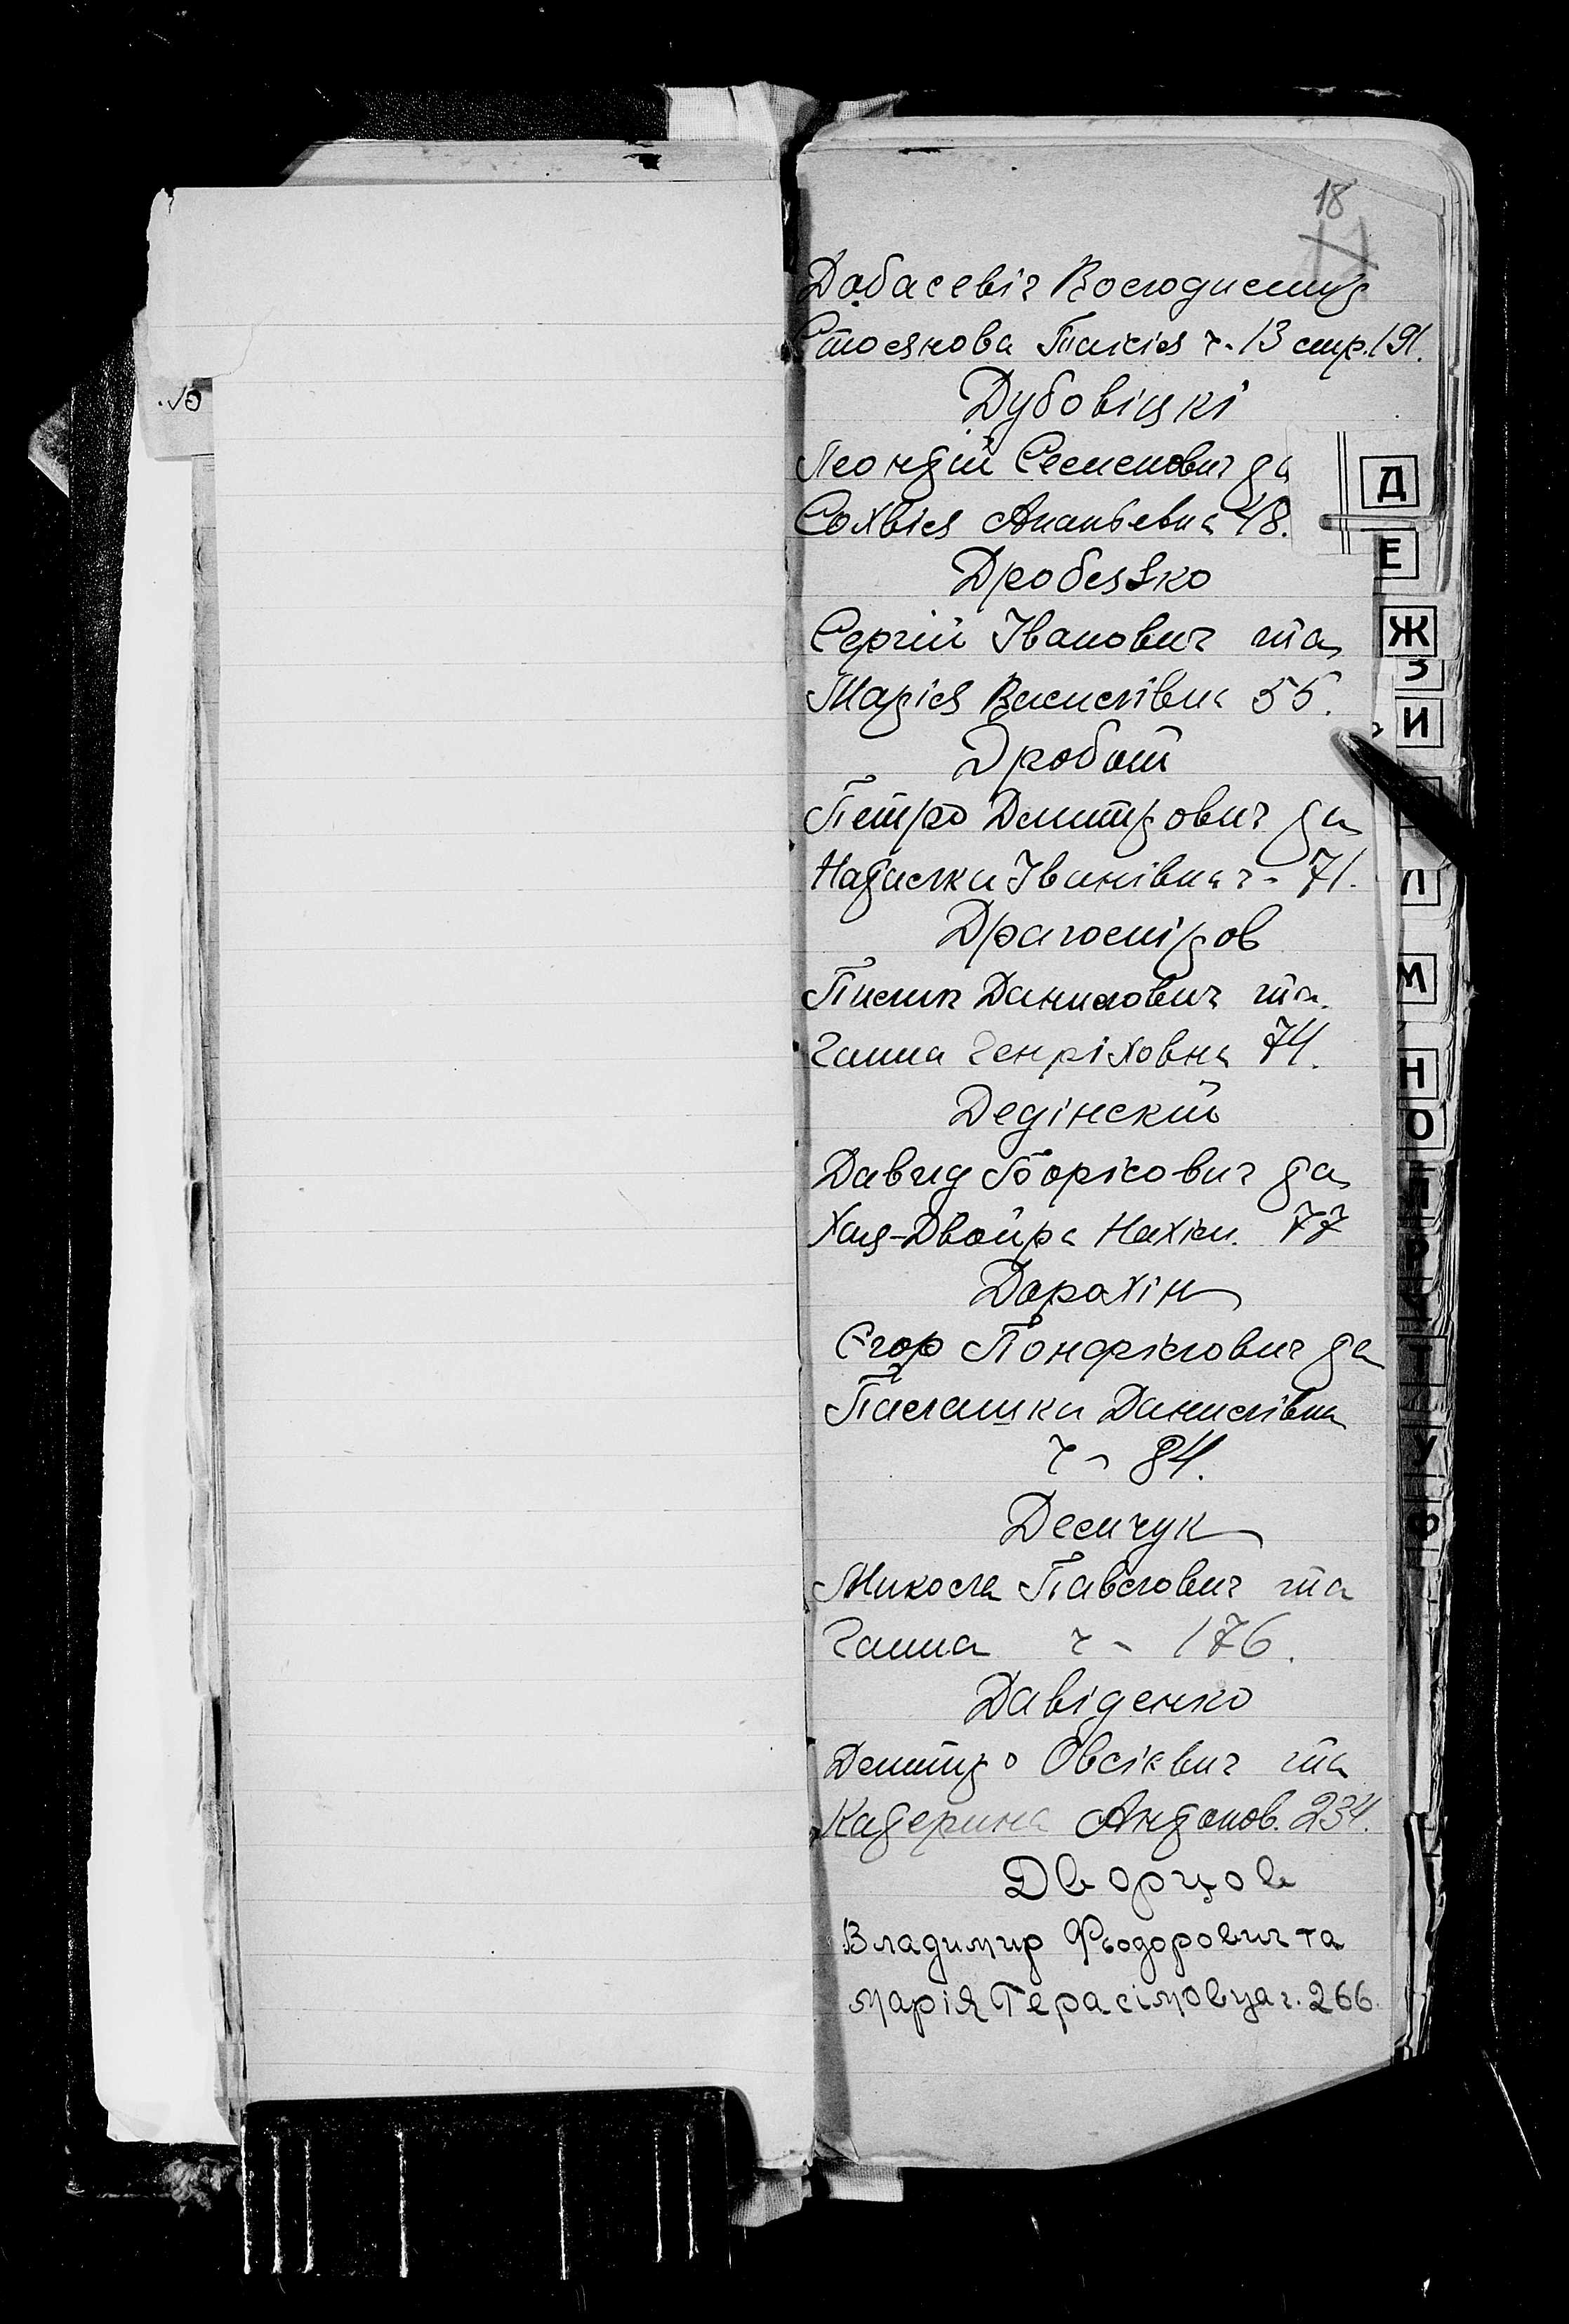 18
Дабасевіч Володимир
Стоянова Таісія ч. 13 стр. 191.
Дубовіцкі
Леонтій Семенович та
Софія Ананьевна 48.
Дробязко
Сергій Іванович та
Марія Василівна 55.
Дробот
Петро Дмитрович та
Наталка Іванівна ч. 71.
Драгомиров
Пилип Данилович та
Ганна Генріховна 74.
Дедінский
Давид Борісович та
Хая-Двойра Нахім. 77
Дорохін
Єгор Панфілович та
Палашка Данилівна
ч. 84.
Демчук
Микола Павлович та
Ганна ч. 176.
Давіденко
Дмитро Овсієвич та
Катерина Антонов. 234.
Дворцов
Владимир Фьодорович та
Марія Герасімовна ч. 266.
Д
Е
Ж
З
И
Л
М
Н
О
П
Р
Т
У
Ф